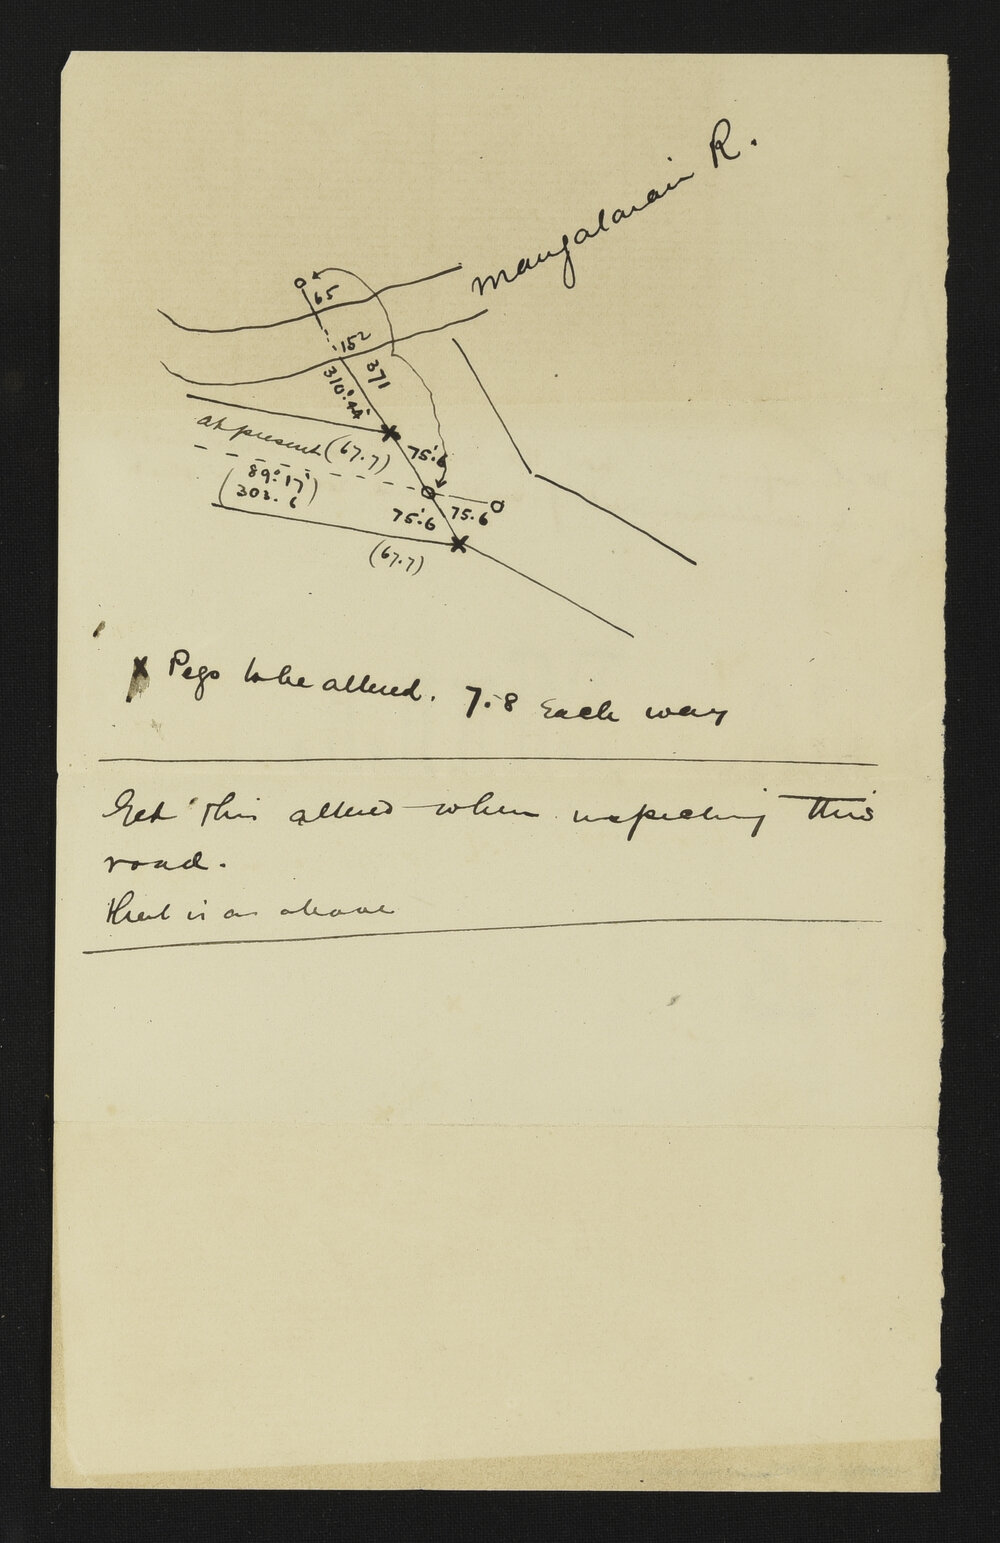 Mangatarain R.
65
152
371
310°.44'
at present (67.7)
75.6
89°.17'
(303.6)
75.6
75.6
(67.7)
x Pegs to be altered. 7.8 Each way
Get this altered when inspecting this
road.
that is as above